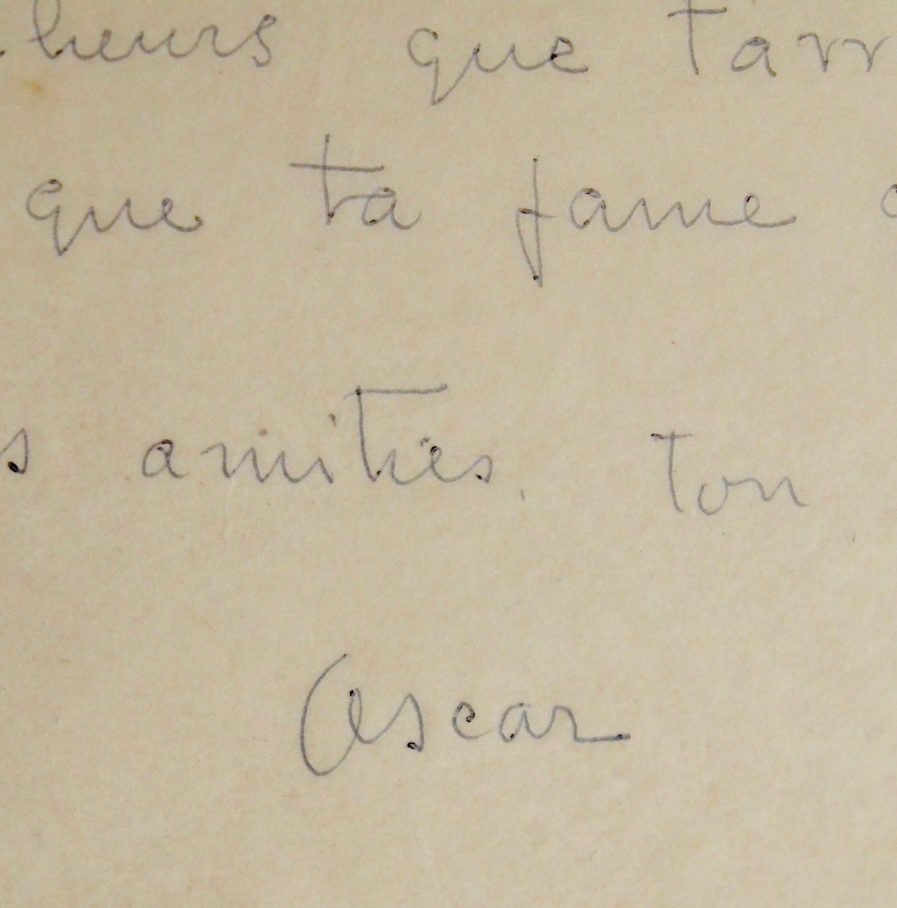 heurs que tarr
que ta fame
s amities. ton
Oscar